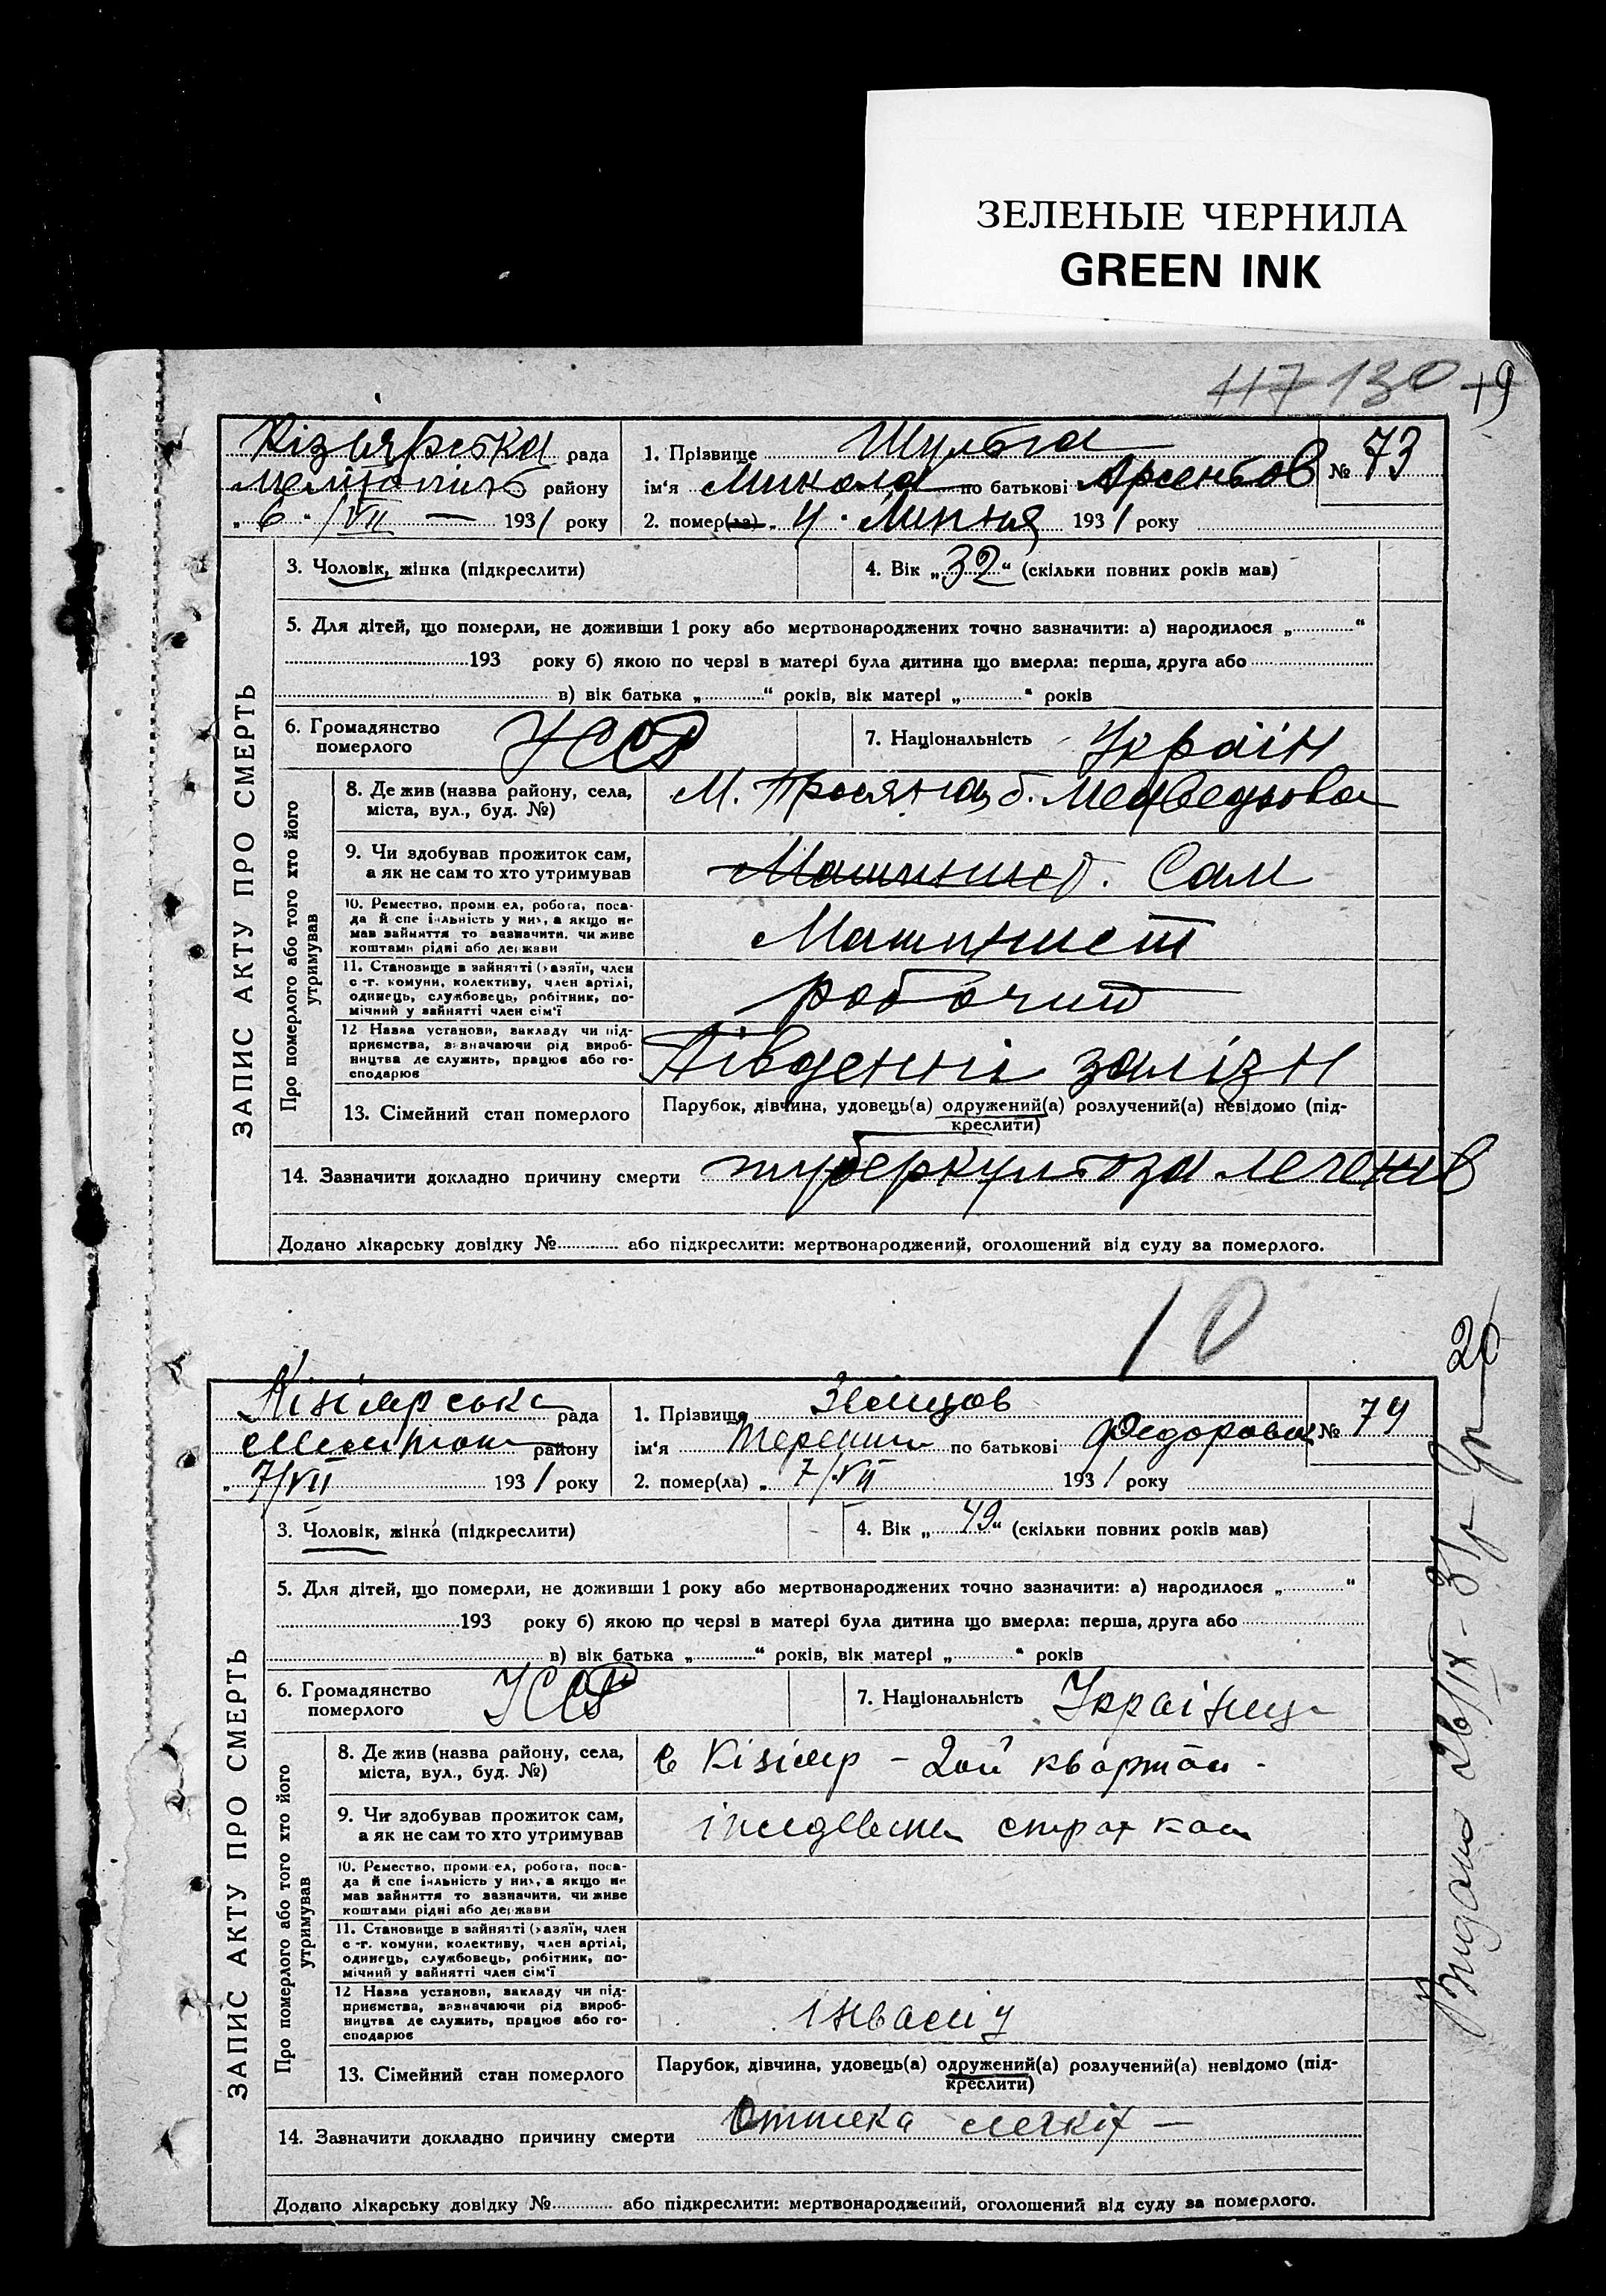 ЗЕЛЕНЫЕ ЧЕРНИЛА
GREEN INK
117 130 19
Кізіярська рада
Мелітопіль району
„ 6 “ /VII — 1931 року
1. Прізвище Шульга
ім‘я Микола по батькові Арсеньов
№ 73
2. помер(ла) „ 4 “ Липня 1931 року
ЗАПИС АКТУ ПРО СМЕРТЬ
3. Чоловік, жінка (підкреслити)
4. Вік „ 32 “ (скільки повних років мав)
5. Для дітей, що померли, не доживши 1 року або мертвонароджених точно зазначити: а) народилося „ “
193 року б) якою по черзі в матері була дитина що вмерла: перша, друга або
в) вік батька „ “ років, вік матері „ “ років
6. Громадянство
померлого
УСРР
7. Національність Україн
Про померлого або того хто його
утримував
8. Де жив (назва району, села,
міста, вул., буд. №)
М. б. Медведьова
9. Чи здобував прожиток сам,
а як не сам то хто утримував
Машинист. Сам
10. Ремество, промисел, робота, поса-
да й спеціяльність у них, а якщо не
мав зайняття то зазначити, чи живе
коштами рідні або держави
Машинист
11. Становище в зайнятті (хазяїн, член
с.-г. комуни, колективу, член артілі,
одинець, службовець, робітник, по-
мічний у зайнятті член сім‘ї
робочий
12 Назва установи, закладу чи під-
приємства, зазначаючи рід вироб-
ництва де служить, працює або го-
сподарює
Південні залізн
13. Сімейний стан померлого
Парубок, дівчина, удовець(а) одружений(а) розлучений(а) невідомо (під-
креслити)
14. Зазначити докладно причину смерти туберкульоза легенів
Додано лікарську довідку № або підкреслити: мертвонароджений, оголошений від суду за померлого.
10
Кізіярська рада
району
„ 7/VII 1931 року
1. Прізвище
ім‘я по батькові Федорович
№ 74
2. помер(ла) „ 7/VII 1931 року
ЗАПИС АКТУ ПРО СМЕРТЬ
3. Чоловік, жінка (підкреслити)
4. Вік „ 49 “ (скільки повних років мав)
5. Для дітей, що померли, не доживши 1 року або мертвонароджених точно зазначити: а) народилося „ “
193 року б) якою по черзі в матері була дитина що вмерла: перша, друга або
в) вік батька „ “ років, вік матері „ “ років
6. Громадянство
померлого
УСРР
7. Національність Українец
Про померлого або того хто його
утримував
8. Де жив (назва району, села,
міста, вул., буд. №)
с Кізіяр – 2ой квартал -
9. Чи здобував прожиток сам,
а як не сам то хто утримував
10. Ремество, промисел, робота, поса-
да й спеціяльність у них, а якщо не
мав зайняття то зазначити, чи живе
коштами рідні або держави
11. Становище в зайнятті (хазяїн, член
с.-г. комуни, колективу, член артілі,
одинець, службовець, робітник, по-
мічний у зайнятті член сім‘ї
12 Назва установи, закладу чи під-
приємства, зазначаючи рід вироб-
ництва де служить, працює або го-
сподарює
інвалід
13. Сімейний стан померлого
Парубок, дівчина, удовець(а) одружений(а) розлучений(а) невідомо (під-
креслити)
14. Зазначити докладно причину смерти легкіх —
Додано лікарську довідку № або підкреслити: мертвонароджений, оголошений від суду за померлого.
Видано 26/IX - 31р
20